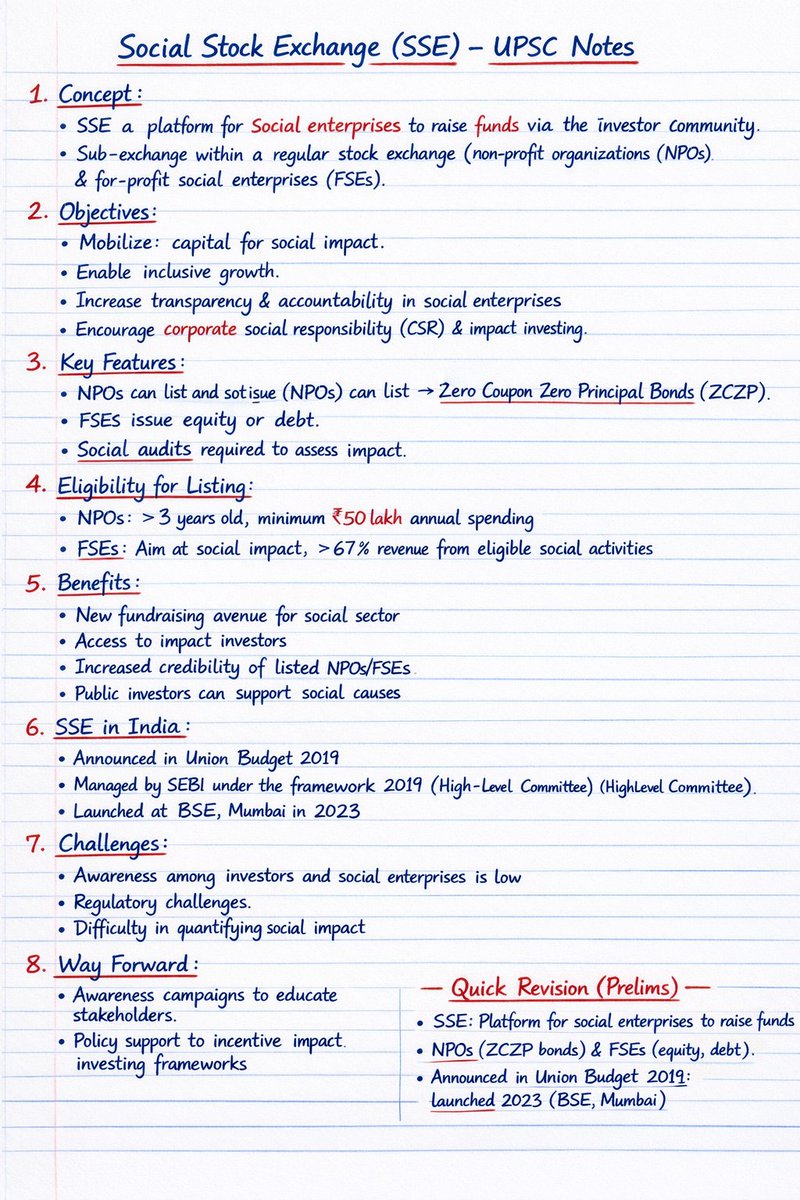 Social Stock Exchange (SSE) – UPSC Notes
1. Concept:
• SSE a platform for Social enterprises to raise funds via the investor community.
• Sub-exchange within a regular stock exchange (non-profit organizations (NPOs)
& for-profit social enterprises (FSEs).
2. Objectives:
• Mobilize: capital for social impact.
• Enable inclusive growth.
• Increase transparency & accountability in social enterprises
• Encourage corporate social responsibility (CSR) & impact investing.
3. Key Features:
• NPOs can list and sotisue (NPOs) can list → Zero Coupon Zero Principal Bonds (ZCZP).
• FSEs issue equity or debt.
• Social audits required to assess impact.
4. Eligibility for Listing:
• NPOs: >3 years old, minimum ₹50 lakh annual spending
• FSEs: Aim at social impact, >67% revenue from eligible social activities
5. Benefits:
• New fundraising avenue for social sector
• Access to impact investors
• Increased credibility of listed NPOs/FSEs
• Public investors can support social causes
6. SSE in India:
• Announced in Union Budget 2019
• Managed by SEBI under the framework 2019 (High-Level Committee) (HighLevel Committee).
• Launched at BSE, Mumbai in 2023
7. Challenges:
• Awareness among investors and social enterprises is low
• Regulatory challenges.
• Difficulty in quantifying social impact
8. Way Forward:
• Awareness campaigns to educate
stakeholders.
• Policy support to incentive impact.
investing frameworks
— Quick Revision (Prelims) —
• SSE: Platform for social enterprises to raise funds
• NPOs (ZCZP bonds) & FSEs (equity, debt).
• Announced in Union Budget 2019:
launched 2023 (BSE, Mumbai)